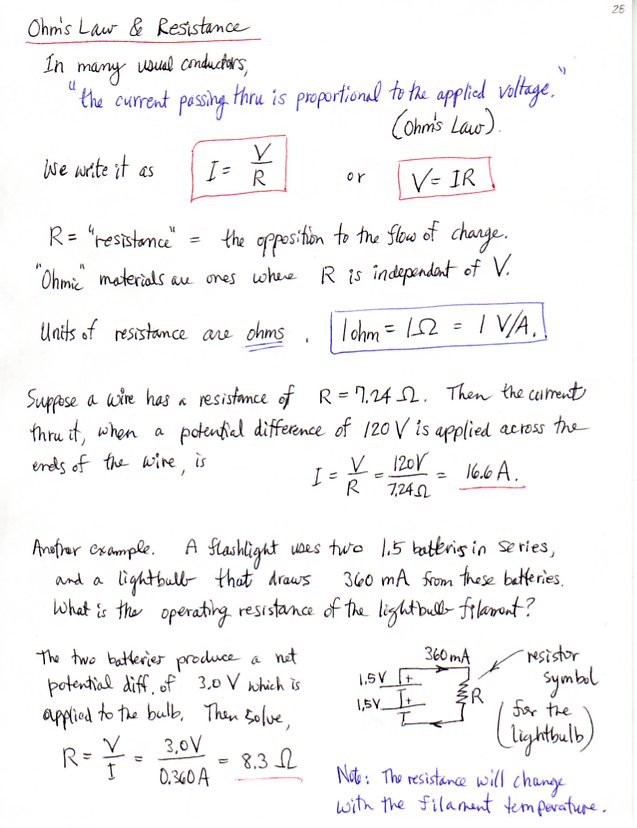 25
Ohm's Law & Resistance
In many usual conductors,
"the current passing thru is proportional to the applied voltage."
(Ohm's Law).
We write it as I = V/R or V = IR
R = "resistance" = the opposition to the flow of charge.
"Ohmic" materials are ones where R is independent of V.
Units of resistance are ohms. 1 ohm = 1Ω = 1 V/A.
Suppose a wire has a resistance of R = 7.24 Ω. Then the current
thru it, when a potential difference of 120 V is applied across the
ends of the wire, is I = V/R = 120V/7.24Ω = 16.6 A.
Another example. A flashlight uses two 1.5 batteries in series,
and a lightbulb that draws 360 mA from these batteries.
What is the operating resistance of the lightbulb filament?
The two batteries produce a net
potential diff. of 3.0 V which is
applied to the bulb. Then solve,
R = V/I = 3.0V/0.360A = 8.3 Ω
360 mA
1.5V +
1.5V +
R
resistor
symbol
(for the
lightbulb)
Note: The resistance will change
with the filament temperature.